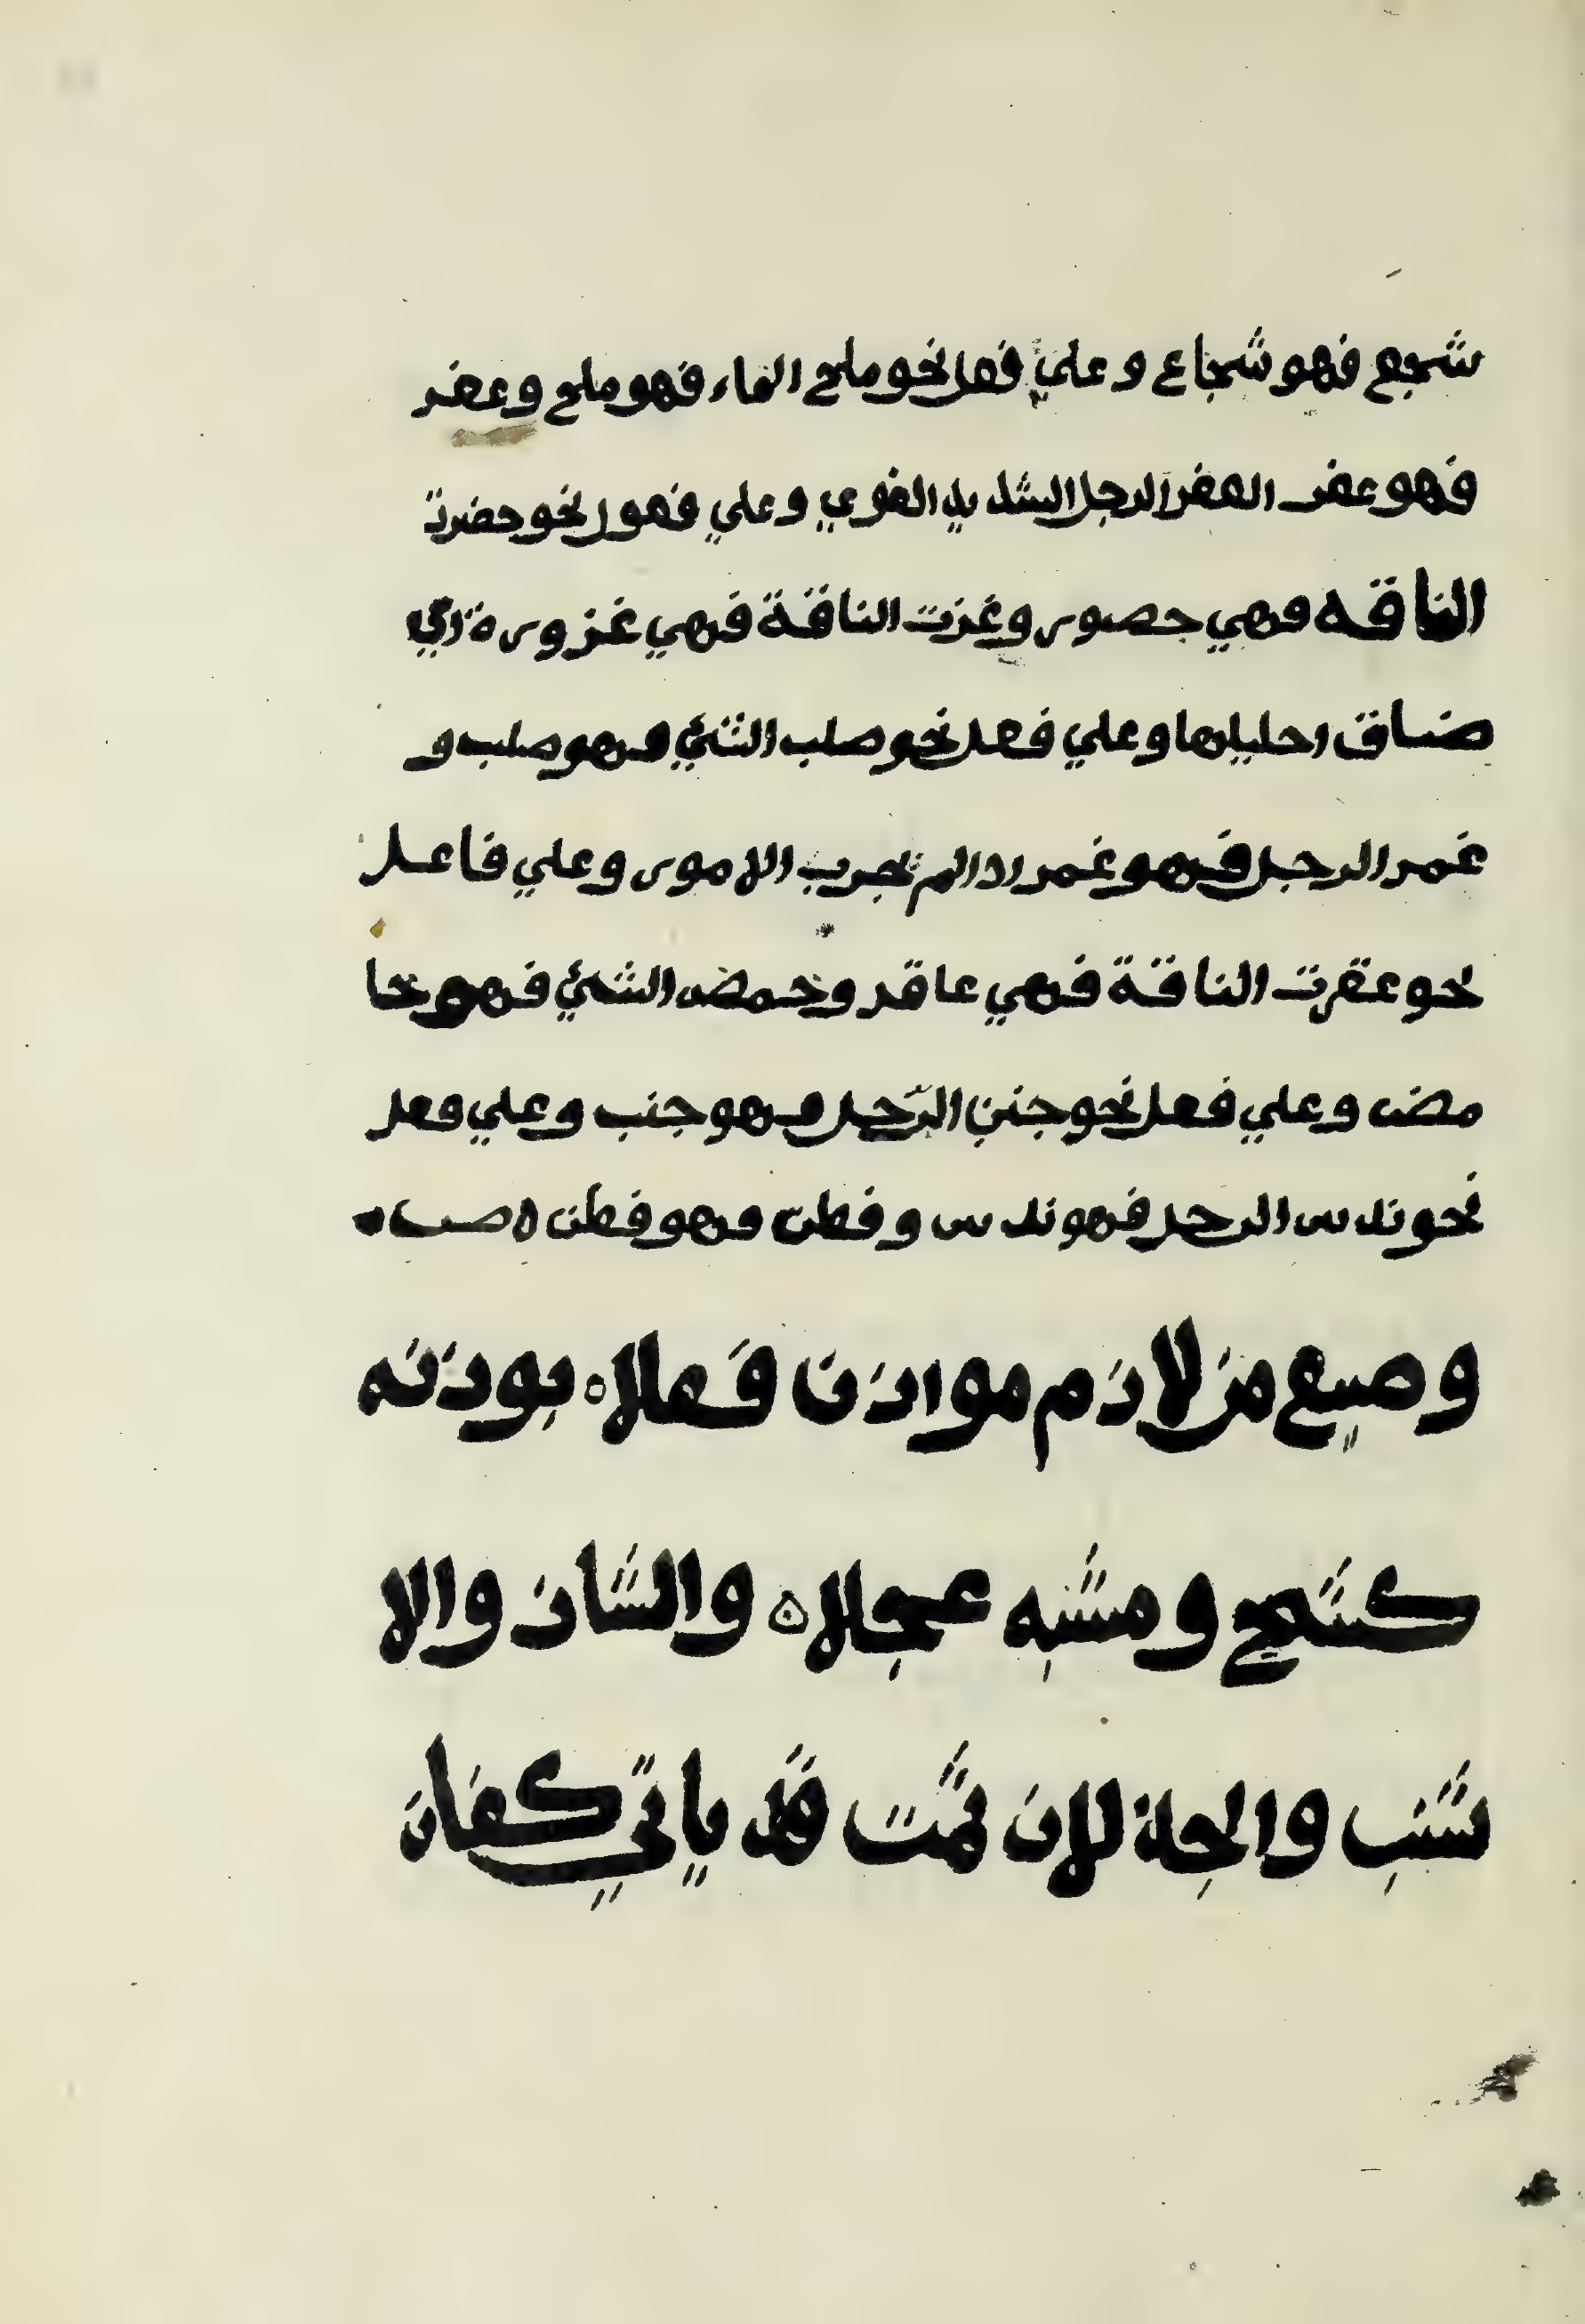 شجع فهو شجاع وعلي فعل نحو ملح الماء فهو ملح وعفر
فهو عفر العفر الرجل الشديد القوي وعلي فعول نحو حصرت
الناقه فهي حصور وغزرت الناقة فهي غزورة اي
ضاق احليلها وعلي فعل نحو صلب الشئ فهو صلب و
غمر الرجل فهو غمر اذا لم يجرب الامور وعلي فاعل
نحو عقرت الناقة فهي عاقر وحمض الشئ فهو حا
مض وعلي فعل نحو جنب الرّجل فهو جنب وعلي فعل
نحو ندس الرجل فهو ندس وفطن فهو فطن
وصيغ من لازم موازن فَعلا ٥ بوزنه
كشج ومشبه عجلا ٥ والشاز والا
شنب والجذلان ثُمّت قَد ياتي كفان